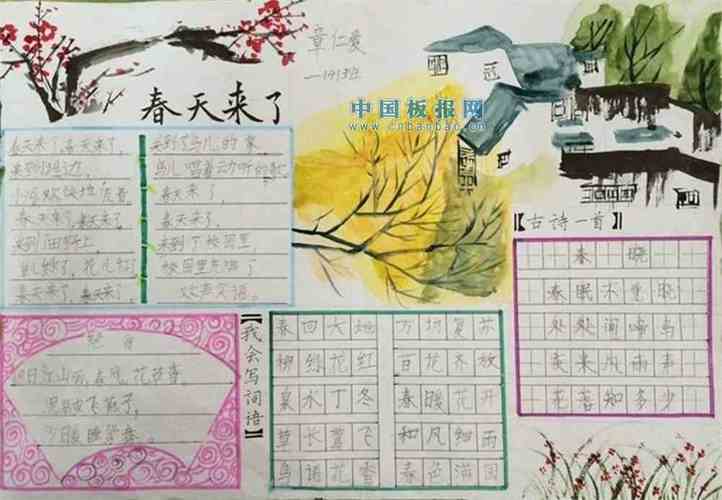 春天来了
章仁爱
中国板报网
www.cnbanbao.cn
春天来了,春天来了,
来到河边,
小河欢快地流着
春天来了,春天来了,
来到田野上,
草儿绿了,花儿红了
春天来了,春天来了,
来到鸟儿的家,
鸟儿唱着动听的歌
春天来了
春天来了,
来到了校园里,
校园里充满了
欢声笑语。
【古诗一首】
春 晓
春眠不觉晓
处处闻啼鸟
夜来风雨声
花落知多少
绝句
日江山丽,春风花草香。
泥融飞燕子,
沙暖睡鸳鸯。
【我会写词语】
春回大地
柳绿花红
泉水丁冬
草长莺飞
鸟语花香
万物复苏
百花齐放
春暖花开
和风细雨
春色满园